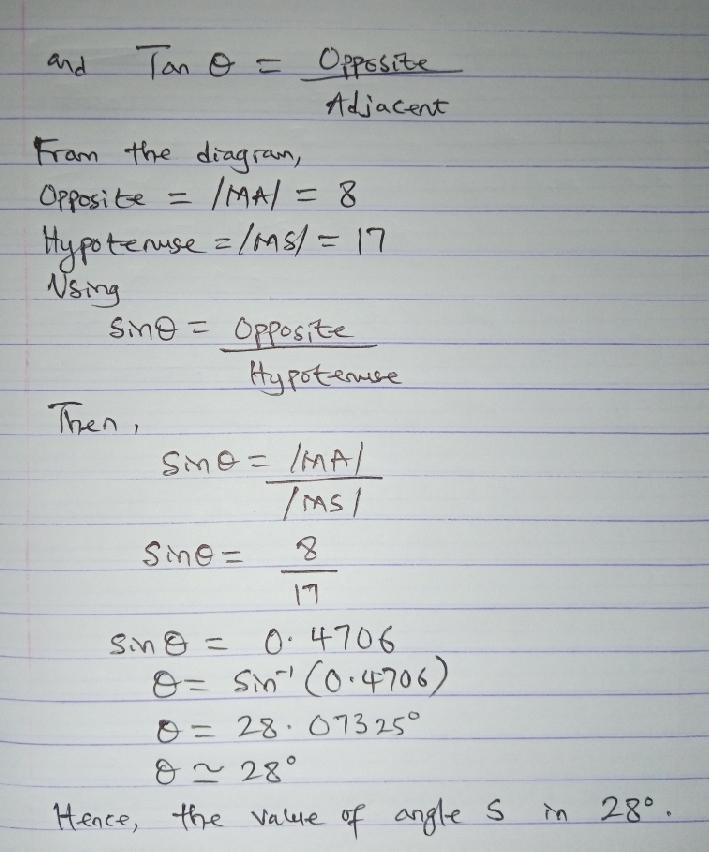 and Tan θ = Opposite
Adjacent
From the diagram,
Opposite = /MA/ = 8
Hypotenuse = /MS/ = 17
Using
Sinθ = Opposite
Hypotenuse
Then,
Sinθ = /MA/
/MS/
Sinθ = 8
17
Sinθ = 0.4706
θ = Sin⁻¹(0.4706)
θ = 28.07325°
θ ≃ 28°
Hence, the value of angle S in 28°.